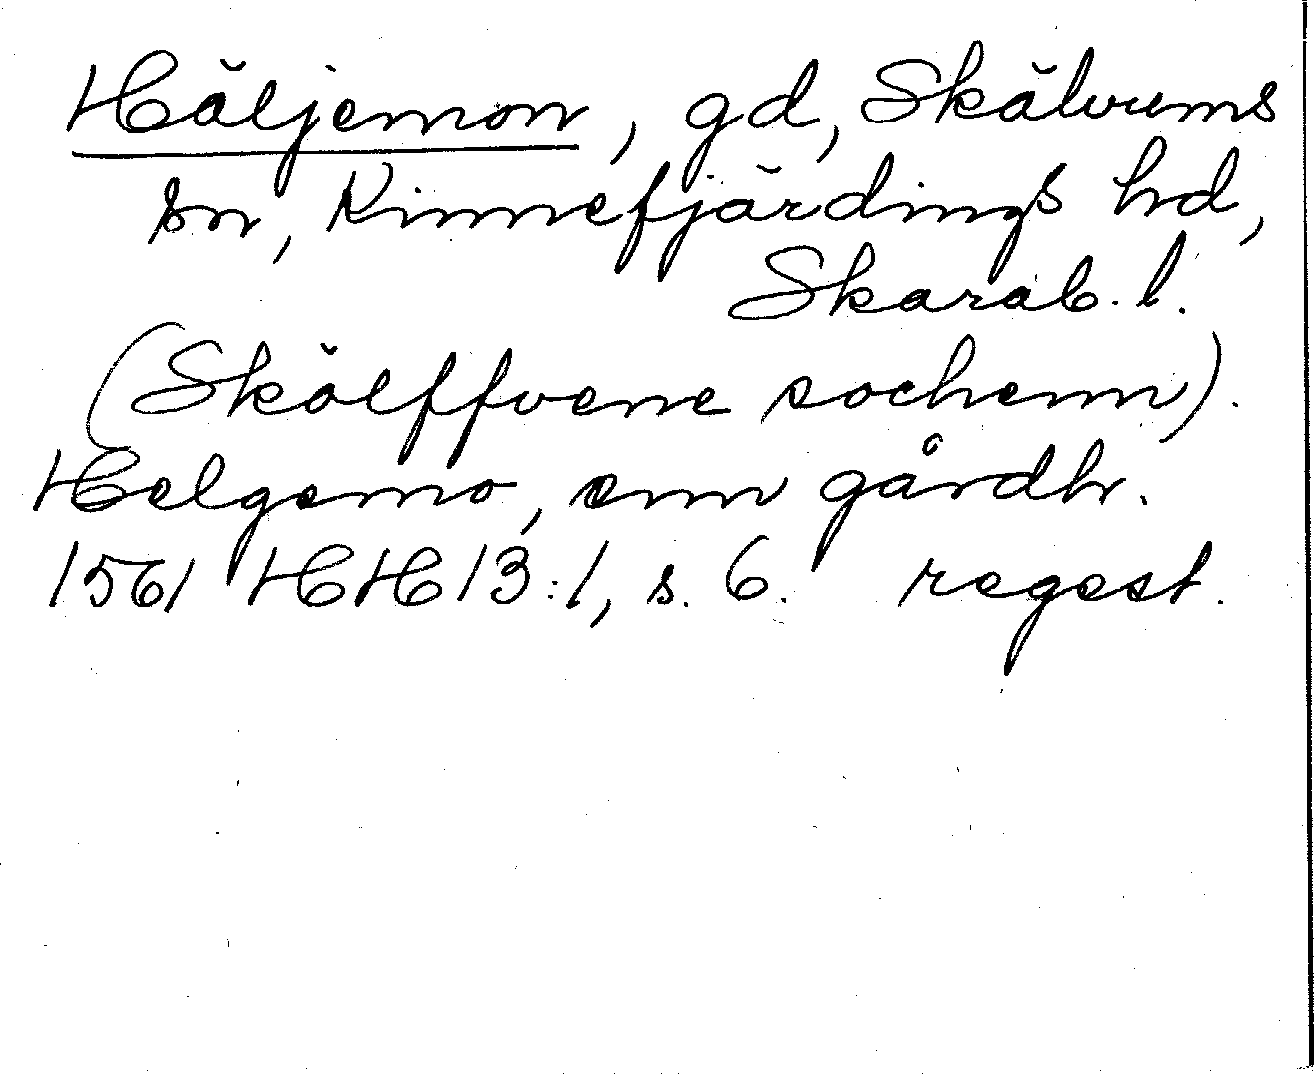 Häljemon, gd, Skälvums
sn, Kinnefjärdings hd,
Skarab. l.
(Skölffvene sochenn).
Helgemo, enn gårdh.
1561 HH 13:1, s. 6. regest.